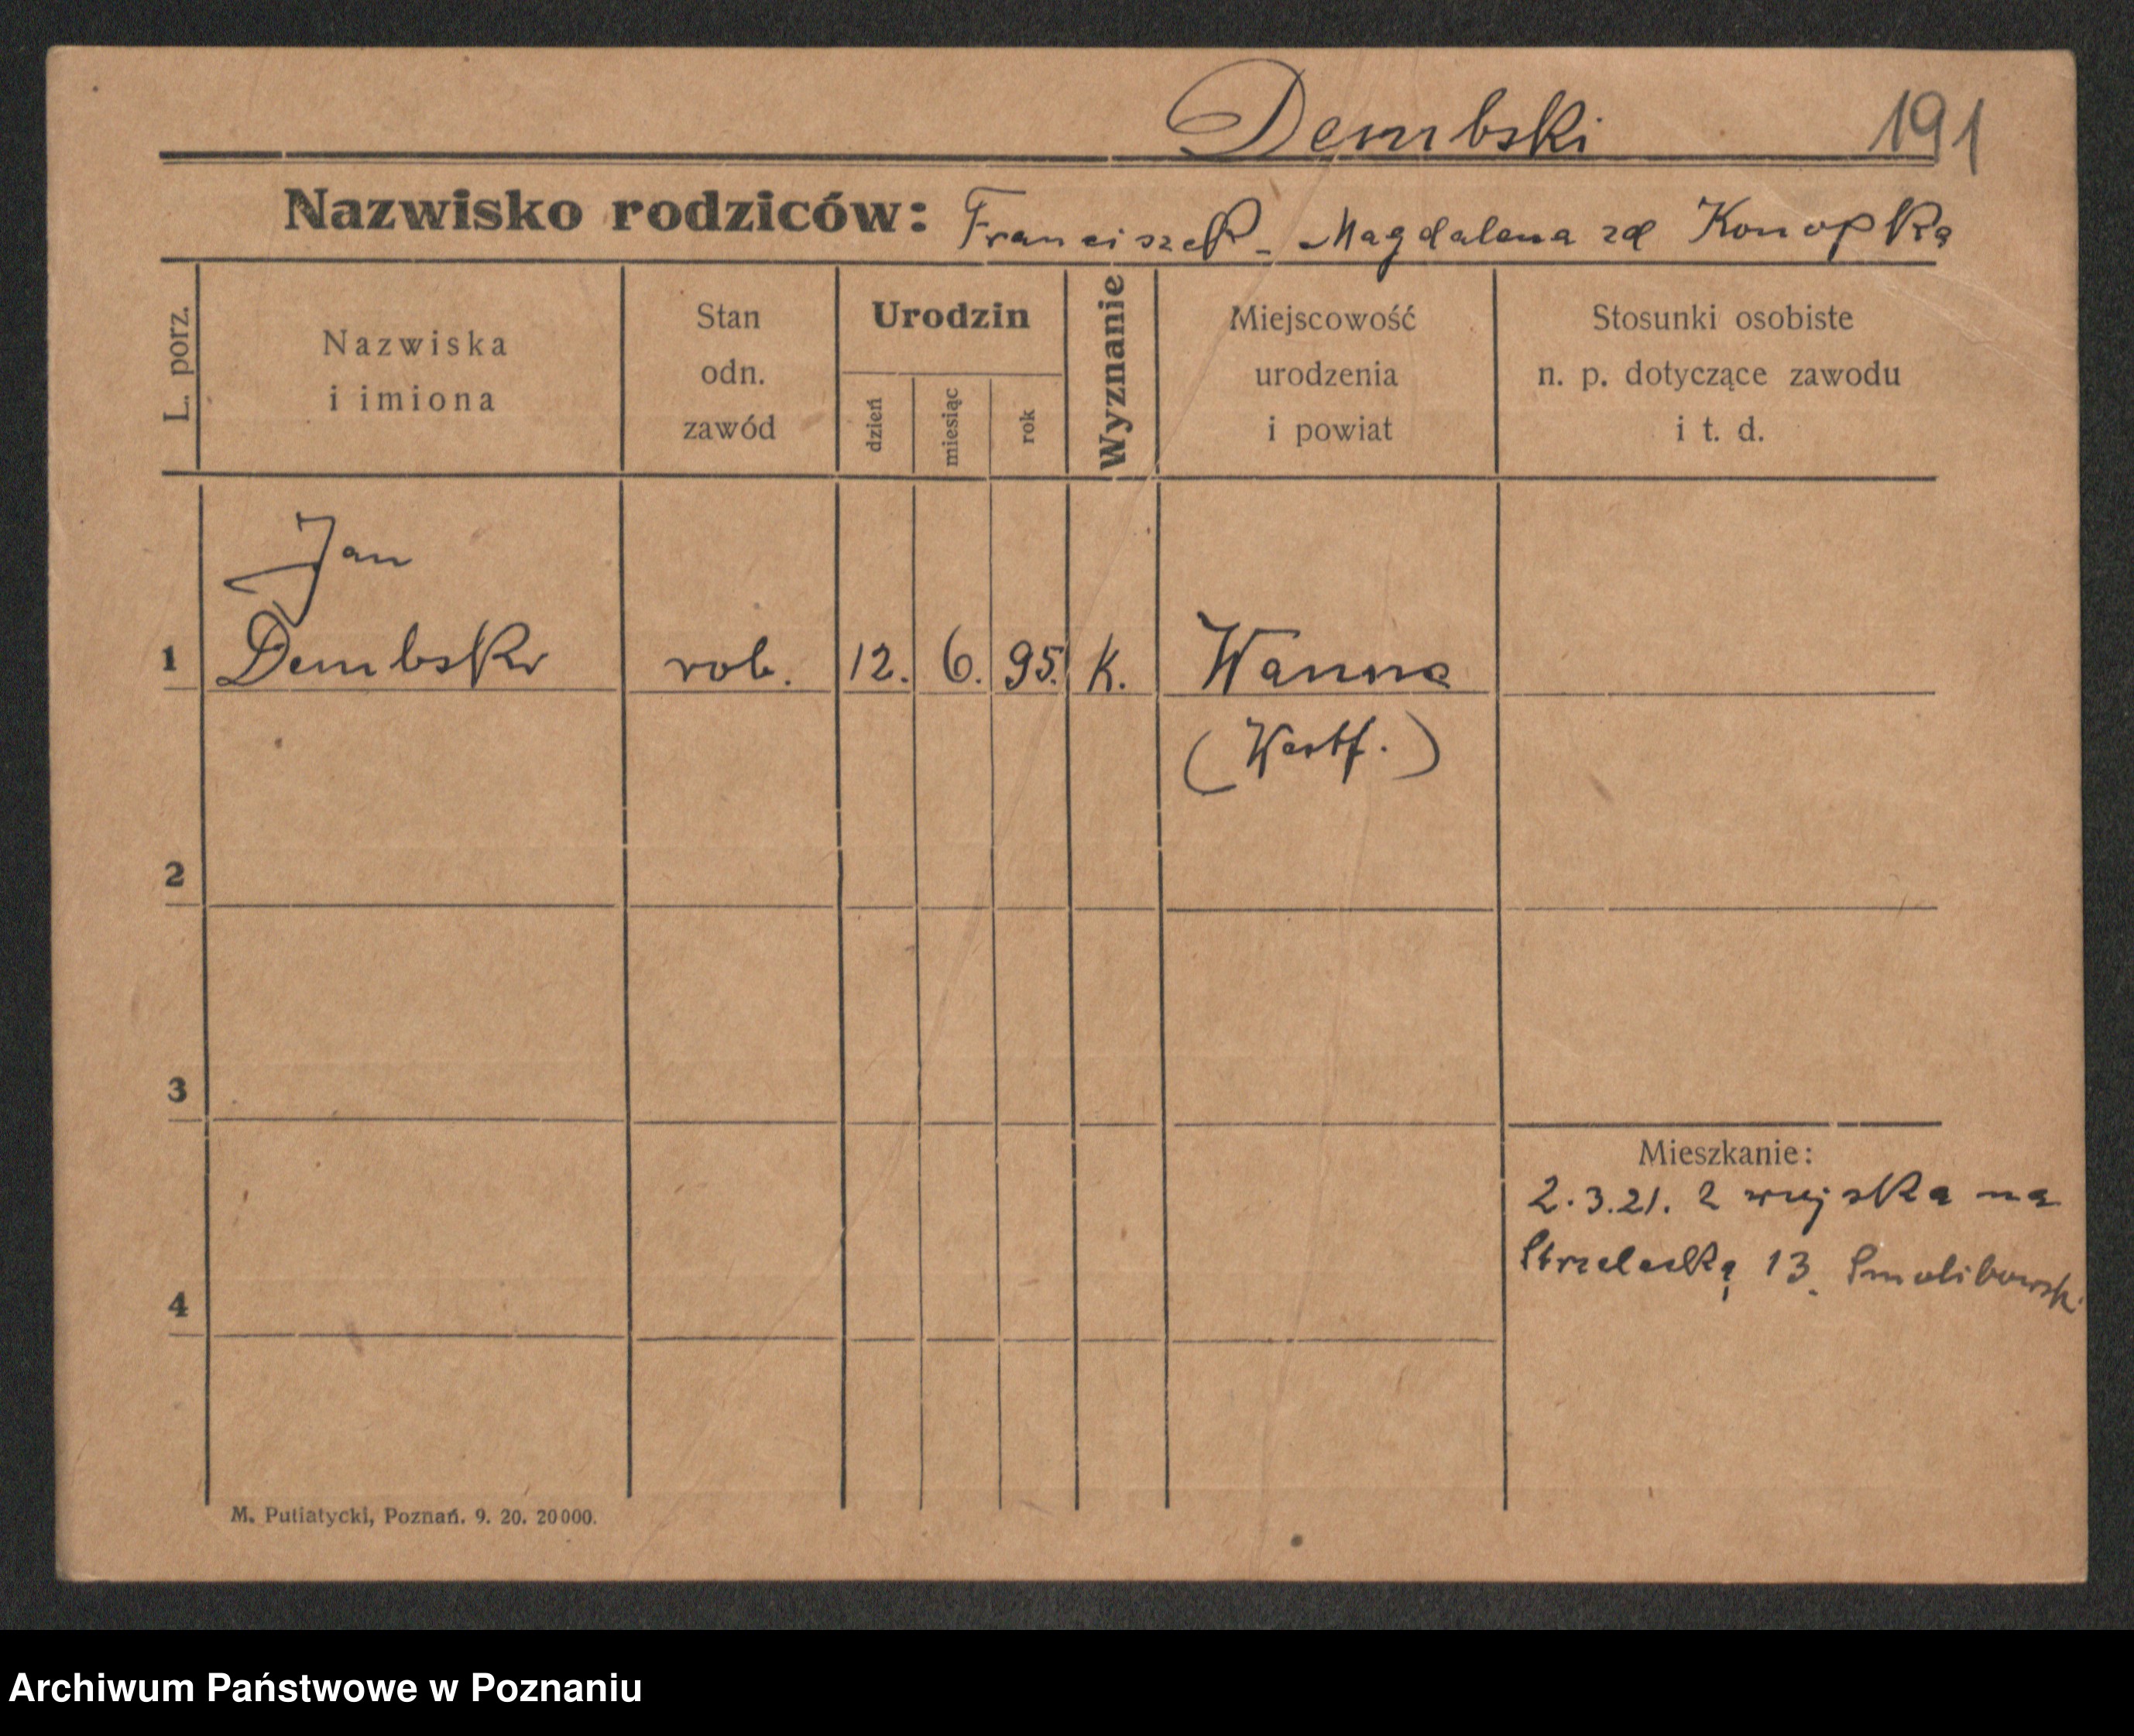 Dembski 191
Nazwisko rodziców: Franciszek - Magdalena zd Konopka
L. porz.
Nazwiska
i imiona
Stan
odn.
zawód
Urodzin
dzień
miesiąc
rok
Wyznanie
Miejscowość
urodzenia
i powiat
Stosunki osobiste
n. p. dotyczące zawodu
i t. d.
Jan
1 Dembski rob. 12. 6. 95. K. Wanna
(Westf.)
2
3
Mieszkanie:
2.3.21. z wojska na
Strzelecką 13.
4
M. Putiatycki, Poznań. 9. 20. 20000.
Archiwum Państwowe w Poznaniu